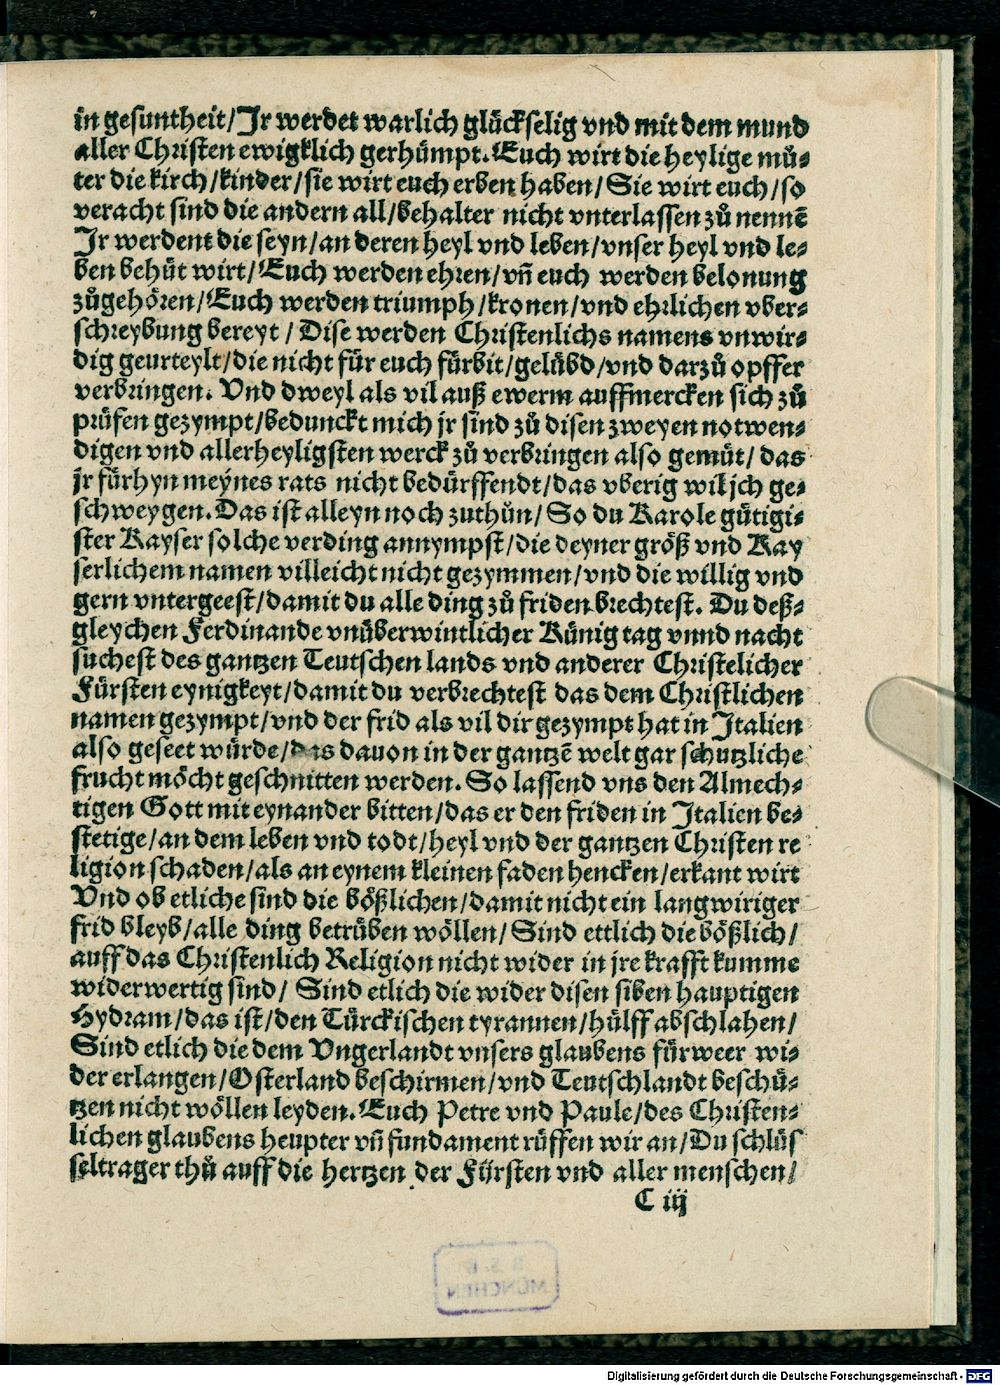 in gesuntheit/Jr werdet warlich glückselig vnd mit dem mund
aller Christen ewigklich gerhümpt. Euch wirt die heylige mů⸗
ter die kirch/kinder/sie wirt euch erben haben/Sie wirt euch/so
veracht sind die andern all/behalter nicht vnterlassen zů nennē
Jr werdent die seyn/an deren heyl vnd leben/vnser heyl vnd le⸗
ben behüt wirt/Euch werden ehren/vñ euch werden belonung
zůgehören/Euch werden triumph/kronen/vnd ehrlichen vber⸗
schreybung bereyt/Dise werden Christenlichs namens vnwir⸗
dig geurteylt/die nicht für euch fürbit/gelübd/vnd darzů opffer
verbringen. Vnd dweyl als vil auß ewerm auffmercken sich zů
prüfen gezympt/bedunckt mich jr sind zů disen zweyen notwen⸗
digen vnd allerheyligsten werck zů verbringen also gemüt/das
jr fürhyn meynes rats nicht bedürffendt/das vberig wil jch ge⸗
schweygen. Das ist alleyn noch zuthůn/So du Karole gütigi⸗
ster Kayser solche verding annympst/die deyner größ vnd Kay
serlichem namen villeicht nicht gezymmen/vnd die willig vnd
gern vntergeest/damit du alle ding zů friden brechtest. Du deß⸗
gleychen Ferdinande vnüberwintlicher Künig tag vnnd nacht
suchest des gantzen Teutschen lands vnd anderer Christelicher
Fürsten eynigkeyt/damit du verbrechtest das dem Christlichen
namen gezympt/vnd der frid als vil dir gezympt hat in Jtalien
also geseet würde/das dauon in der gantzē welt gar schutzliche
frucht möcht geschnitten werden. So lassend vns den Almech⸗
tigen Gott mit eynander bitten/das er den friden in Jtalien be⸗
stetige/an dem leben vnd todt/heyl vnd der gantzen Christen re
ligion schaden/als an eynem kleinen faden hencken/erkant wirt
Vnd ob etliche sind die bößlichen/damit nicht ein langwiriger
frid bleyb/alle ding betrüben wöllen/Sind ettlich die bößlich/
auff das Christenlich Religion nicht wider in jre krafft kumme
widerwertig sind/Sind etlich die wider disen siben hauptigen
Hydram/das ist/den Türckischen tyrannen/hülff abschlahen/
Sind etlich die dem Vngerlandt vnsers glaubens fürweer wi⸗
der erlangen/Osterland beschirmen/vnd Teutschlandt beschü⸗
tzen nicht wöllen leyden. Euch Petre vnd Paule/des Christen⸗
lichen glaubens heupter vñ fundament rüffen wir an/Du schlüs
seltrager thů auff die hertzen der Fürsten vnd aller menschen/
C iij
MÜNCHEN
Digitalisierung gefördert durch die Deutsche Forschungsgemeinschaft - DFG